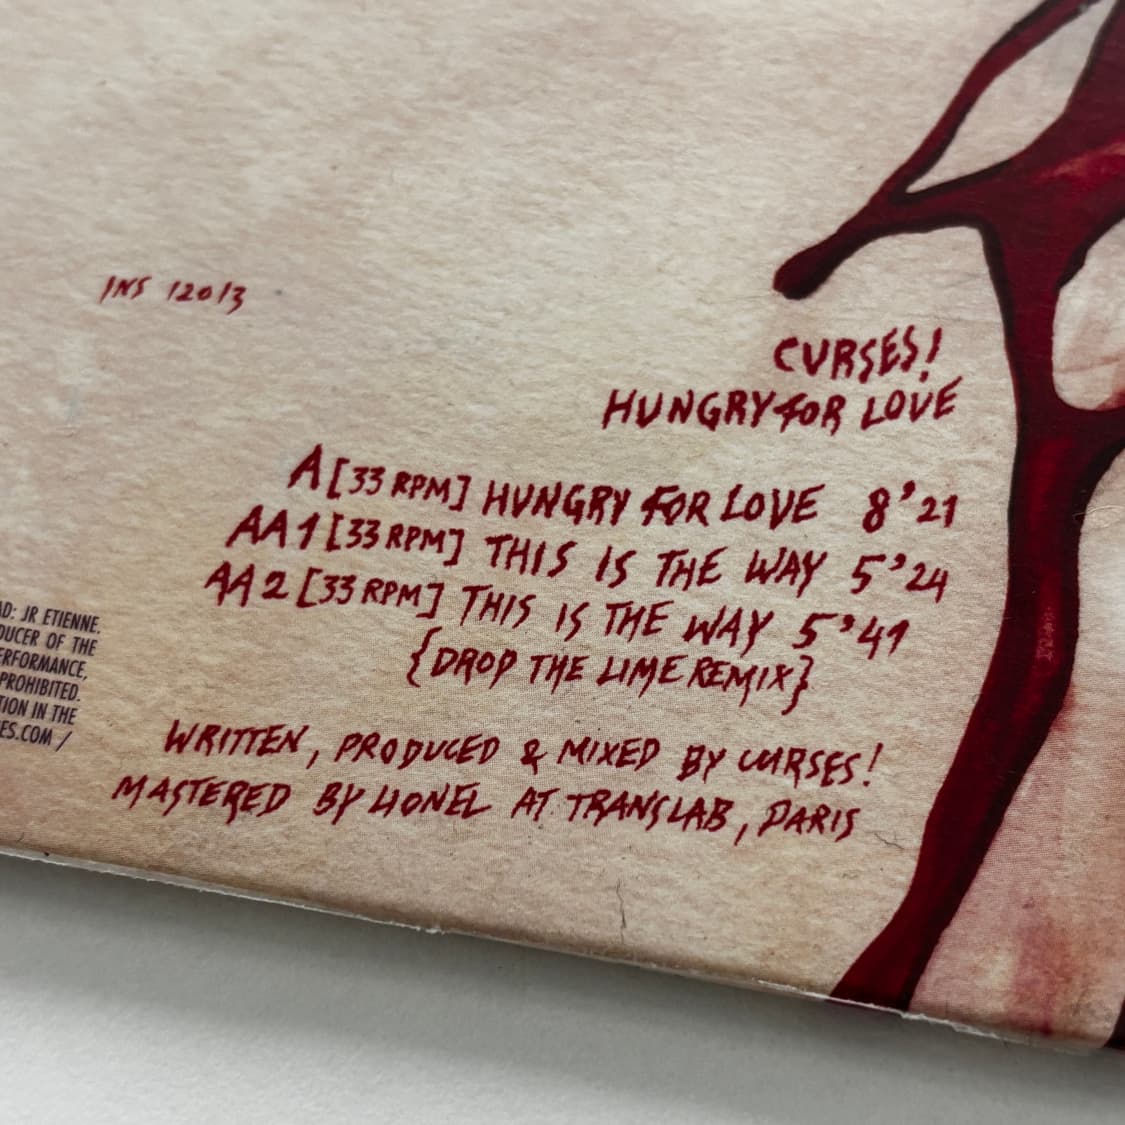 INS 12013
CURSES!
HUNGRY FOR LOVE
A [33 RPM] HUNGRY FOR LOVE 8'21
AA1 [33 RPM] THIS IS THE WAY 5'24
AA2 [33 RPM] THIS IS THE WAY 5'49
{DROP THE LIME REMIX}
WRITTEN, PRODUCED & MIXED BY CURSES!
MASTERED BY LIONEL AT TRANSLAB, PARIS
AD: JR ETIENNE.
OF THE
PROHIBITED.
IN THE